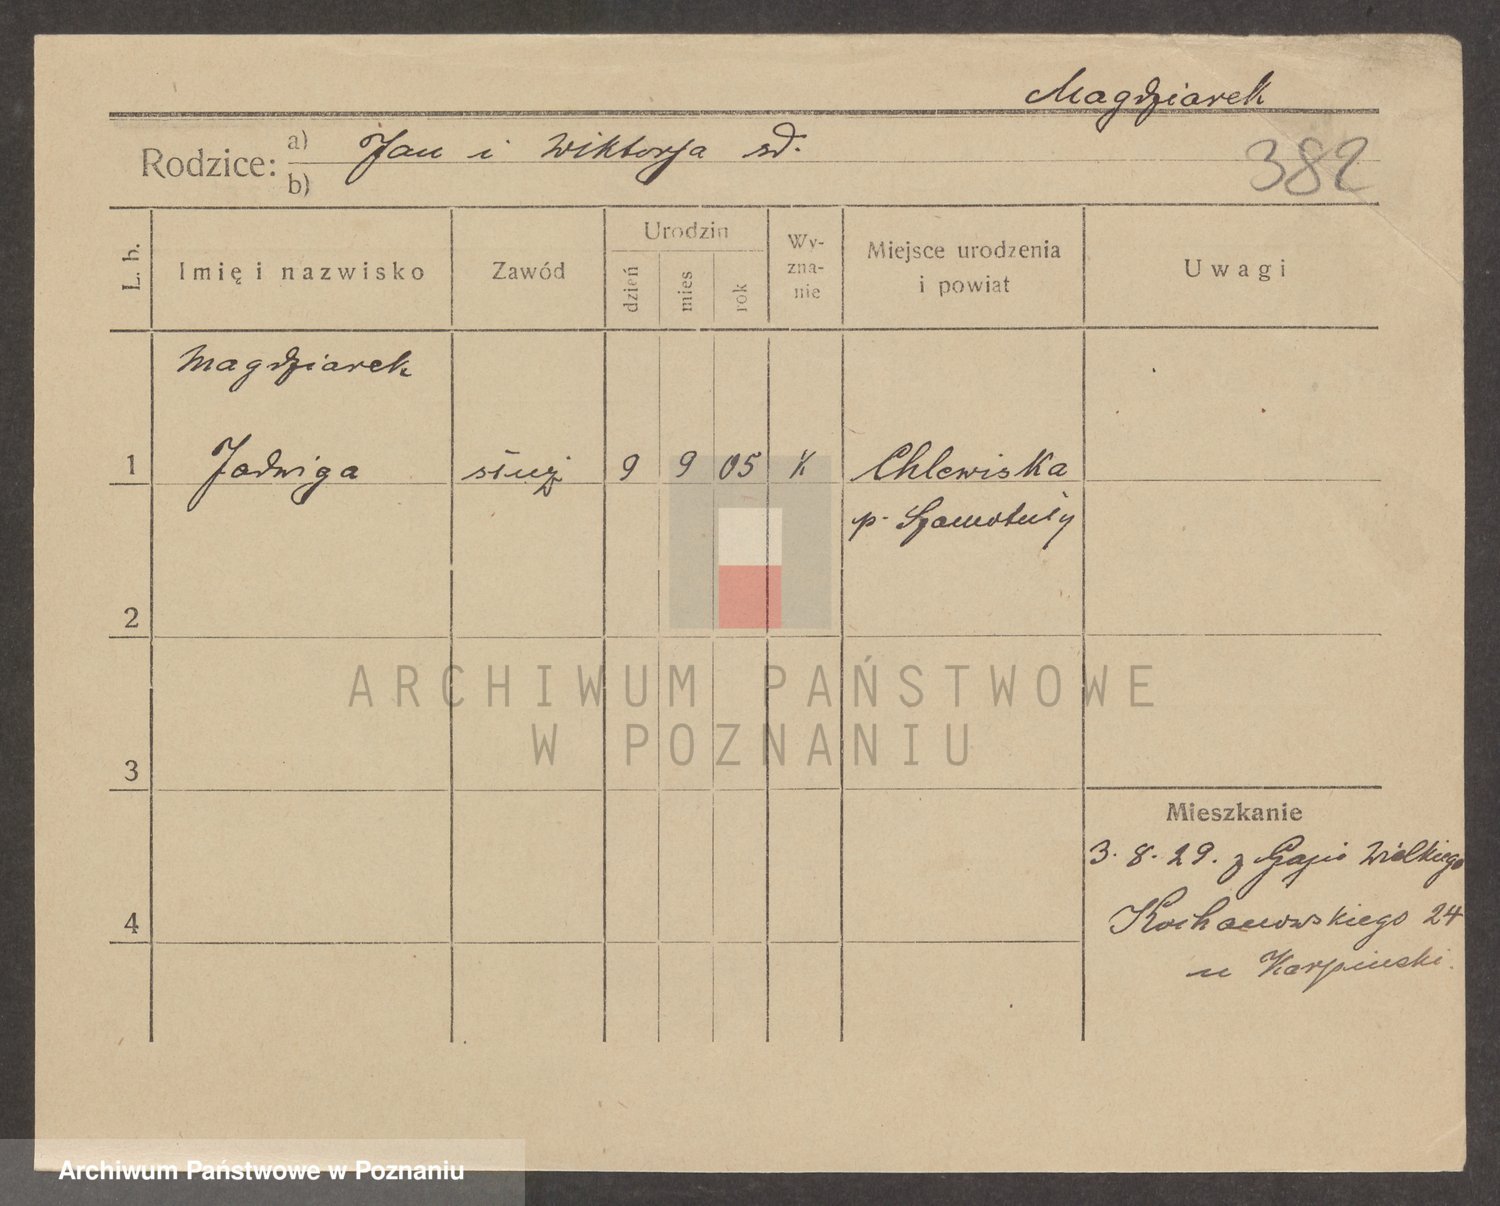 Magdziarek
382
Rodzice: a) Jan i Wiktorja
b)
L. b.
Imię i nazwisko
Zawód
Urodzin
dzień
mies
rok
Wy-
zna-
nie
Miejsce urodzenia
i powiat
Uwagi
Magdziarek
1 Jadwiga służ 9 9 05 K Chlewiska
p. Szamotuły
2
3
4
Mieszkanie
3. 8. 29. z Gaju Wielkiego
Kochanowskiego 24
u Karpinski.
ARCHIWUM PAŃSTWOWE
W POZNANIU
Archiwum Państwowe w Poznaniu